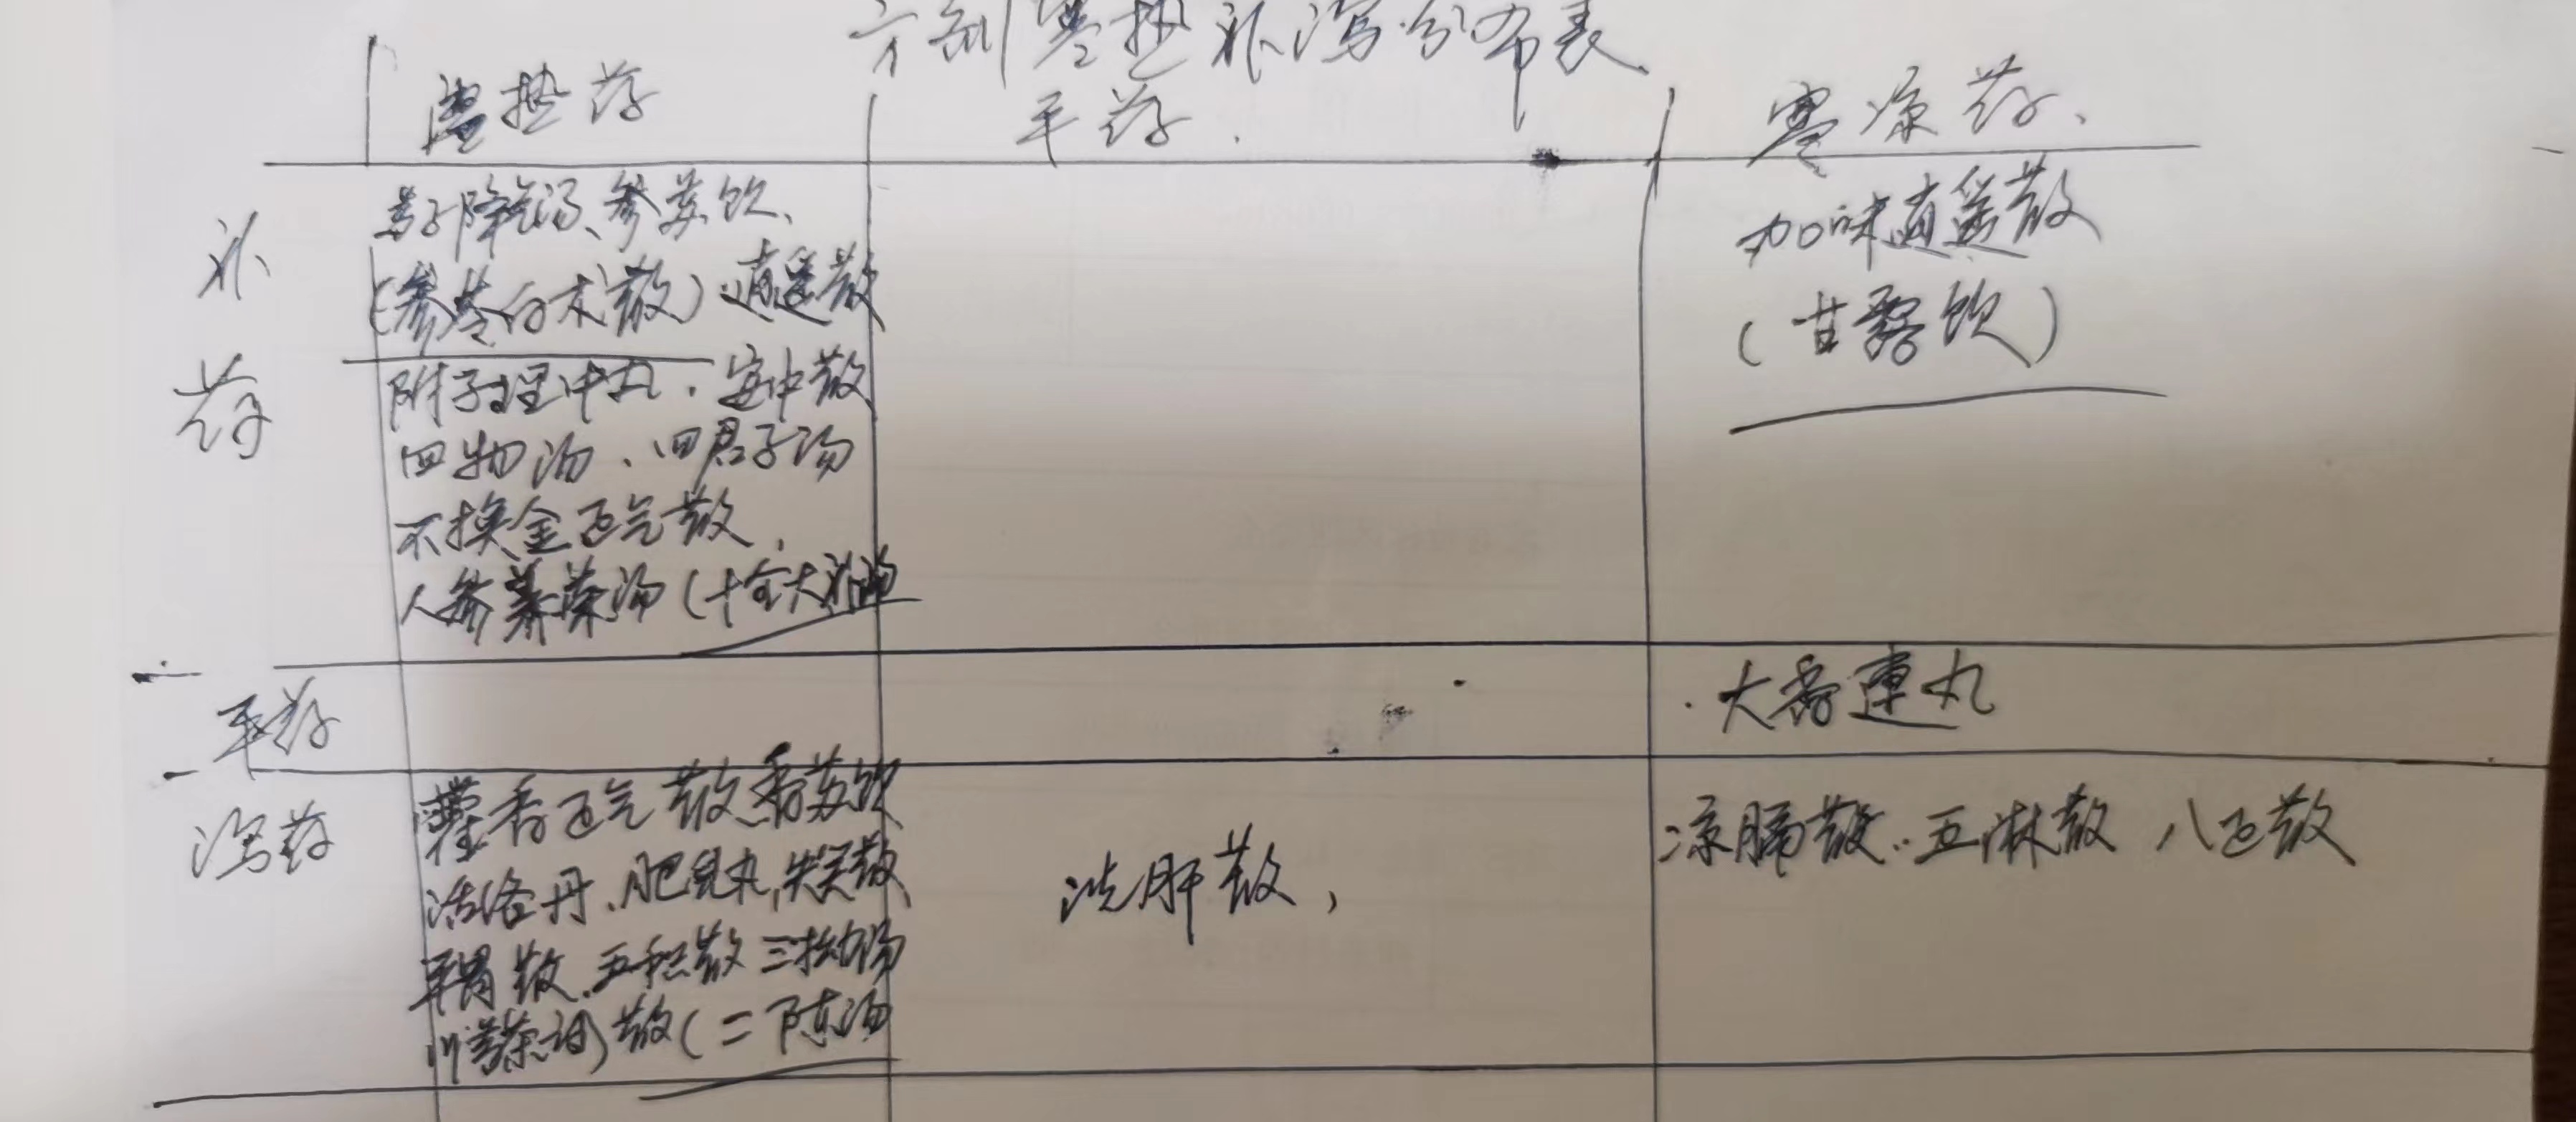 方剂寒热补泻分布表
温热药
平药.
寒凉药、
补药
苏子降气汤、参苏饮、
(参苓白术散)逍遥散
附子理中丸.安中散
四物汤、四君子汤
不换金正气散,
人参养荣汤(十全大补汤
加味逍遥散
(甘露饮)
平药
·大香连丸
泻药
藿香正气散香苏饮
活络丹、肥儿丸,失笑散
平胃散.五积散三拗汤
川芎茶调散(二陈汤
洗肝散,
凉膈散..五淋散 八正散